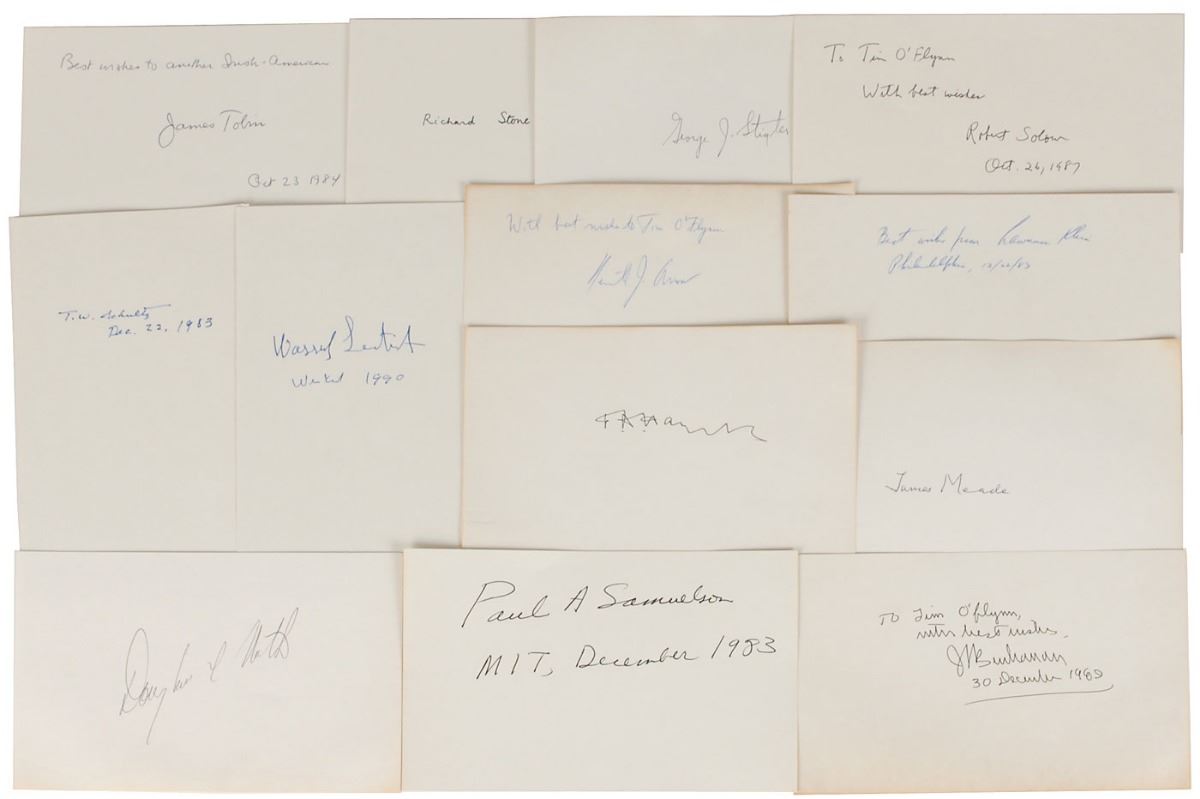 Best wishes to another Irish-American
James Tobin
Oct 23 1984
Richard Stone
George J. Stigler
To Tim O'Flynn
With best wishes
Robert Solow
Oct. 26, 1987
T.W. Schultz
Dec. 22, 1983
Wassily Leontief
1990
With best wishes to Tim O'Flynn
Kenneth J. Arrow
Best wishes from Lawrence Klein
Philadelphia, 12/22/83
FA Hayek
James Meade
Douglass C North
Paul A Samuelson
MIT, December 1983
To Tim O'Flynn,
with best wishes,
JM Buchanan
30 December 1989